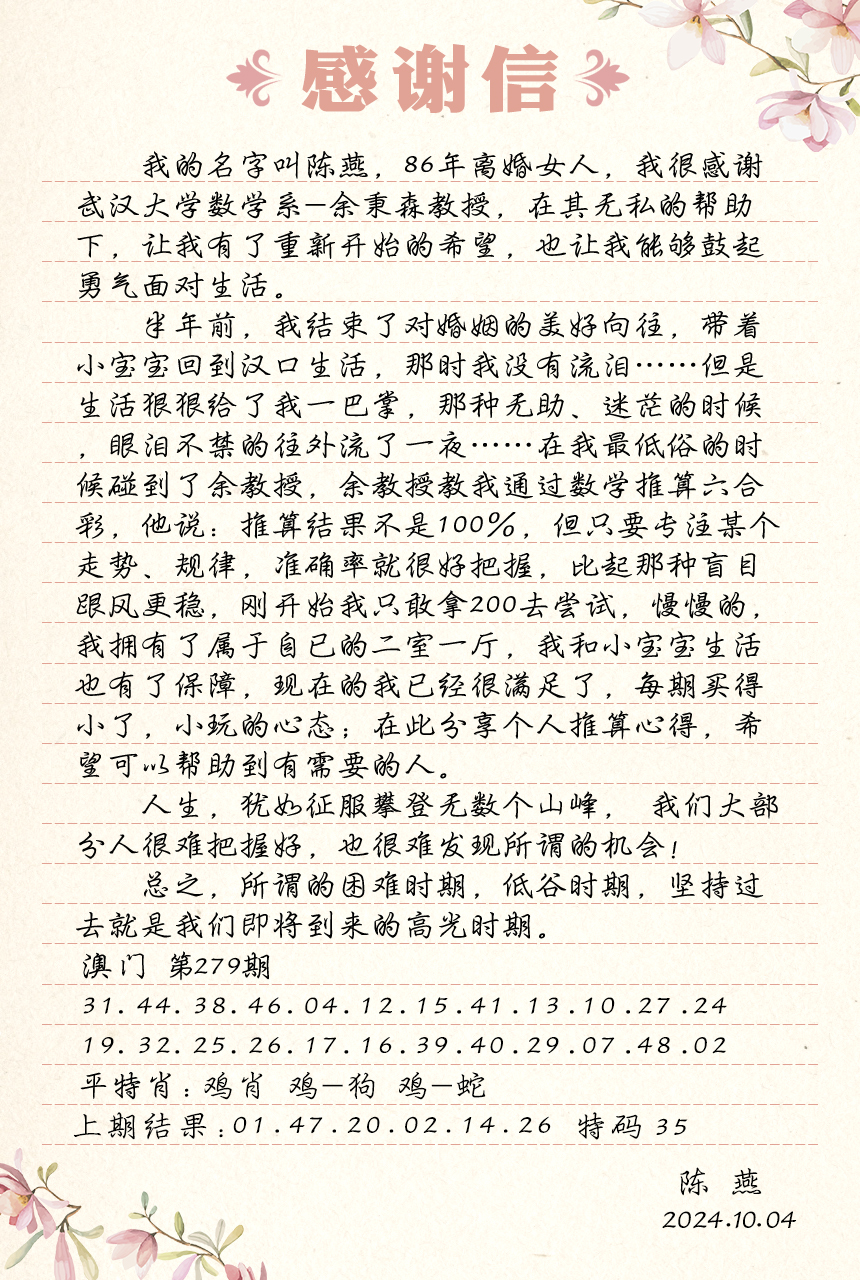 感谢信
我的名字叫陈燕，86年离婚女人，我很感谢
武汉大学数学系—余秉森教授，在其无私的帮助
下，让我有了重新开始的希望，也让我能够鼓起
勇气面对生活。
半年前，我结束了对婚姻的美好向往，带着
小宝宝回到汉口生活，那时我没有流泪……但是
生活狠狠给了我一巴掌，那种无助、迷茫的时候
，眼泪不禁的往外流了一夜……在我最低俗的时
候碰到了余教授，余教授教我通过数学推算六合
彩，他说：推算结果不是100%，但只要专注某个
走势、规律，准确率就很好把握，比起那种盲目
跟风更稳，刚开始我只敢拿200去尝试，慢慢的，
我拥有了属于自已的二室一厅，我和小宝宝生活
也有了保障，现在的我已经很满足了，每期买得
小了，小玩的心态；在此分享个人推算心得，希
望可以帮助到有需要的人。
人生，犹如征服攀登无数个山峰， 我们大部
分人很难把握好，也很难发现所谓的机会！
总之，所谓的困难时期，低谷时期，坚持过
去就是我们即将到来的高光时期。
澳门 第279期
31.44.38.46.04.12.15.41.13.10.27.24
19.32.25.26.17.16.39.40.29.07.48.02
平特肖：鸡肖 鸡—狗 鸡—蛇
上期结果：01.47.20.02.14.26 特码 35
陈 燕
2024.10.04